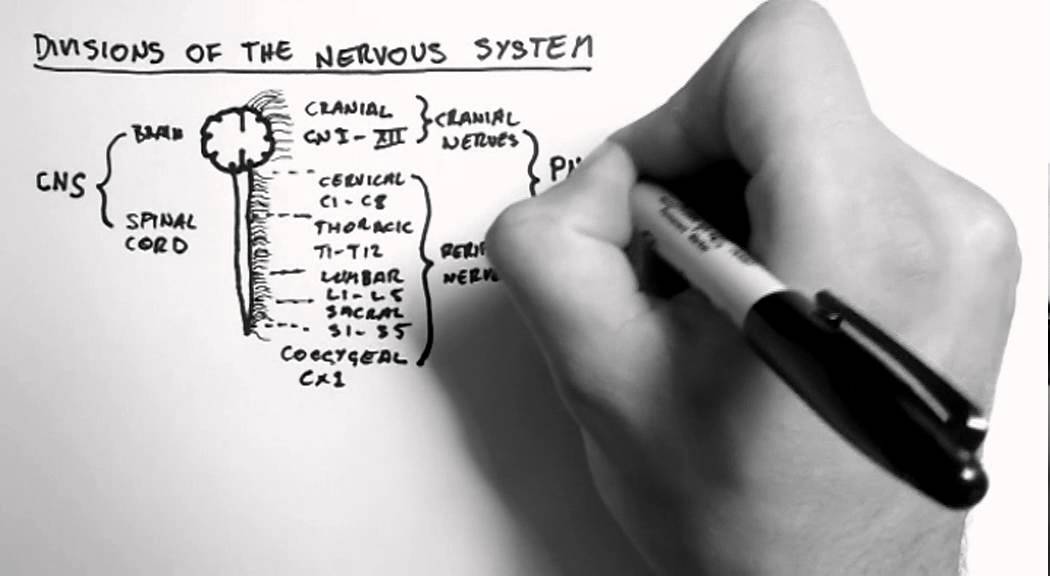 DIVISIONS OF THE NERVOUS SYSTEM
BRAIN
CNS
SPINAL
CORD
CRANIAL
CN I - XII
CRANIAL
NERVES
CERVICAL
C1 - C8
THORACIC
T1 - T12
LUMBAR
L1 - L5
SACRAL
S1 - S5
COCCYGEAL
CX1